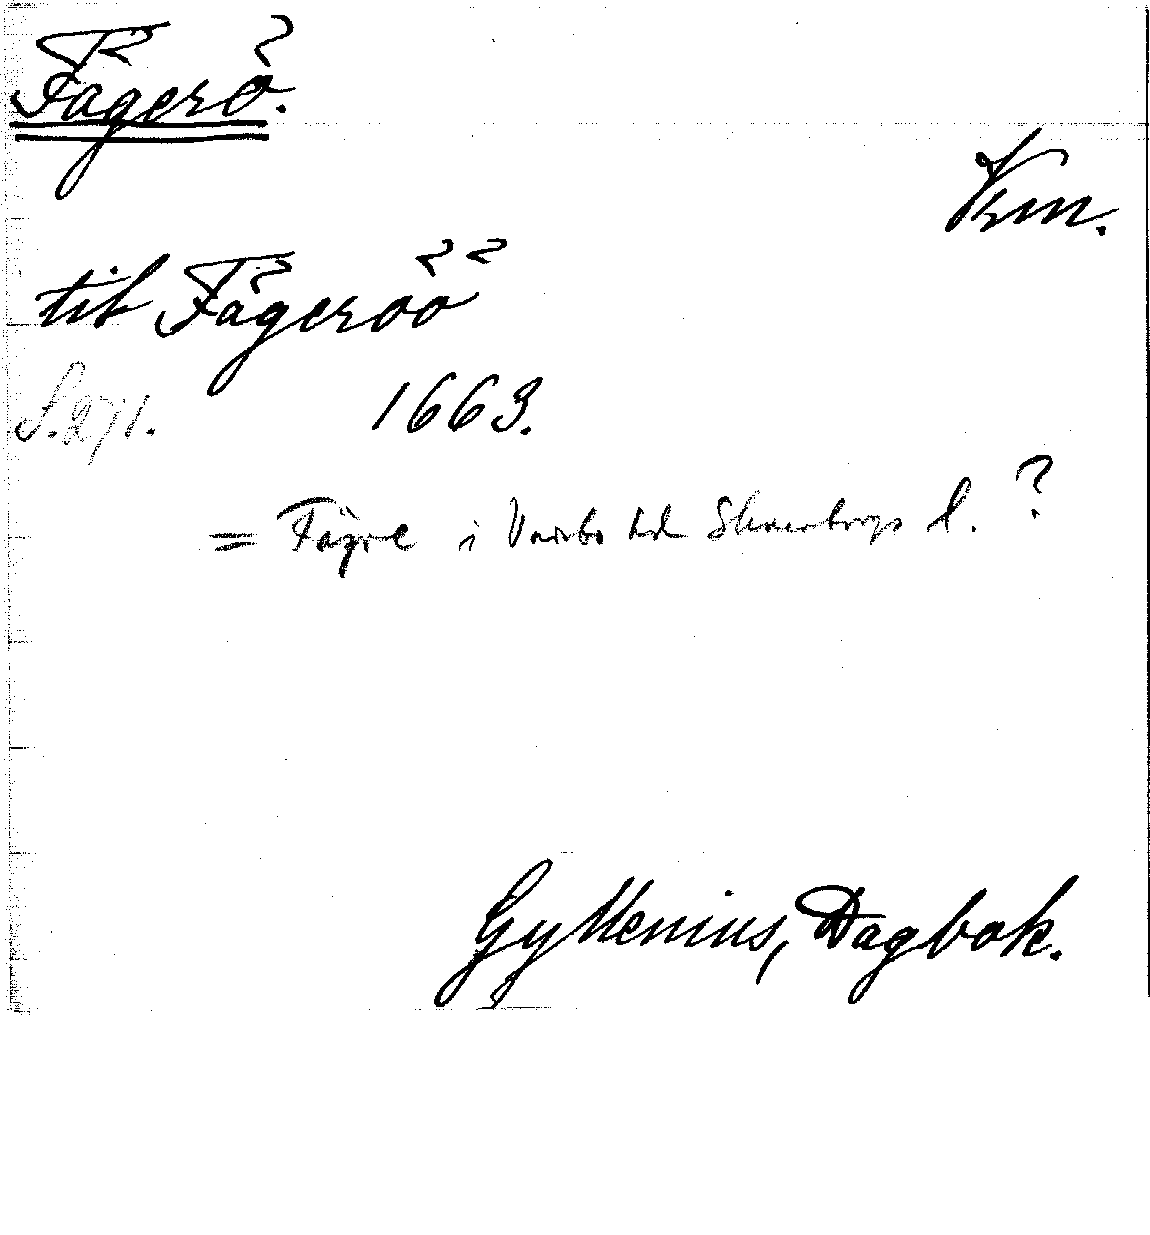 Fägerö.
Krm.
til Fägeröö
S. 271. 1663.
= Fägre i Vadsbo hd Skaraborgs l. ?
Gyllenius, Dagbok.